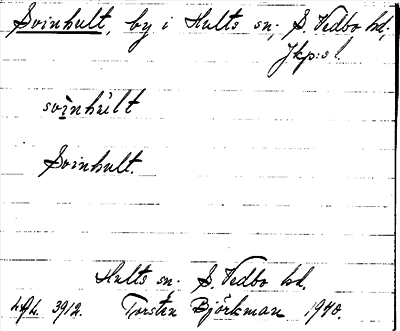 Svinhult, by i Hults sn, S. Vedbo hd,
Jkp:s l.
svìnhùlt
Svinhult.
Hults sn. S. Vedbo hd.
3912. Torsten Björkman 1940.